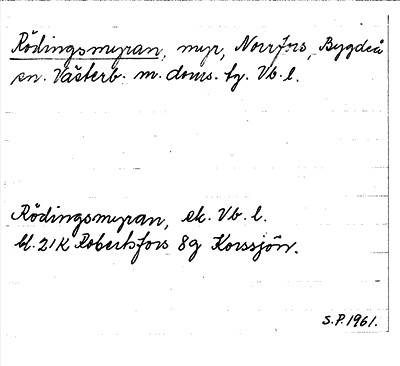 Rödingsmyran, myr, Norrfors, Bygdeå
sn. Västerb. m. doms. tg. Vb. l.
Rödingsmyran, ek. Vb. l.
bl. 21K Robertsfors 8g Korssjön.
S.P. 1961.